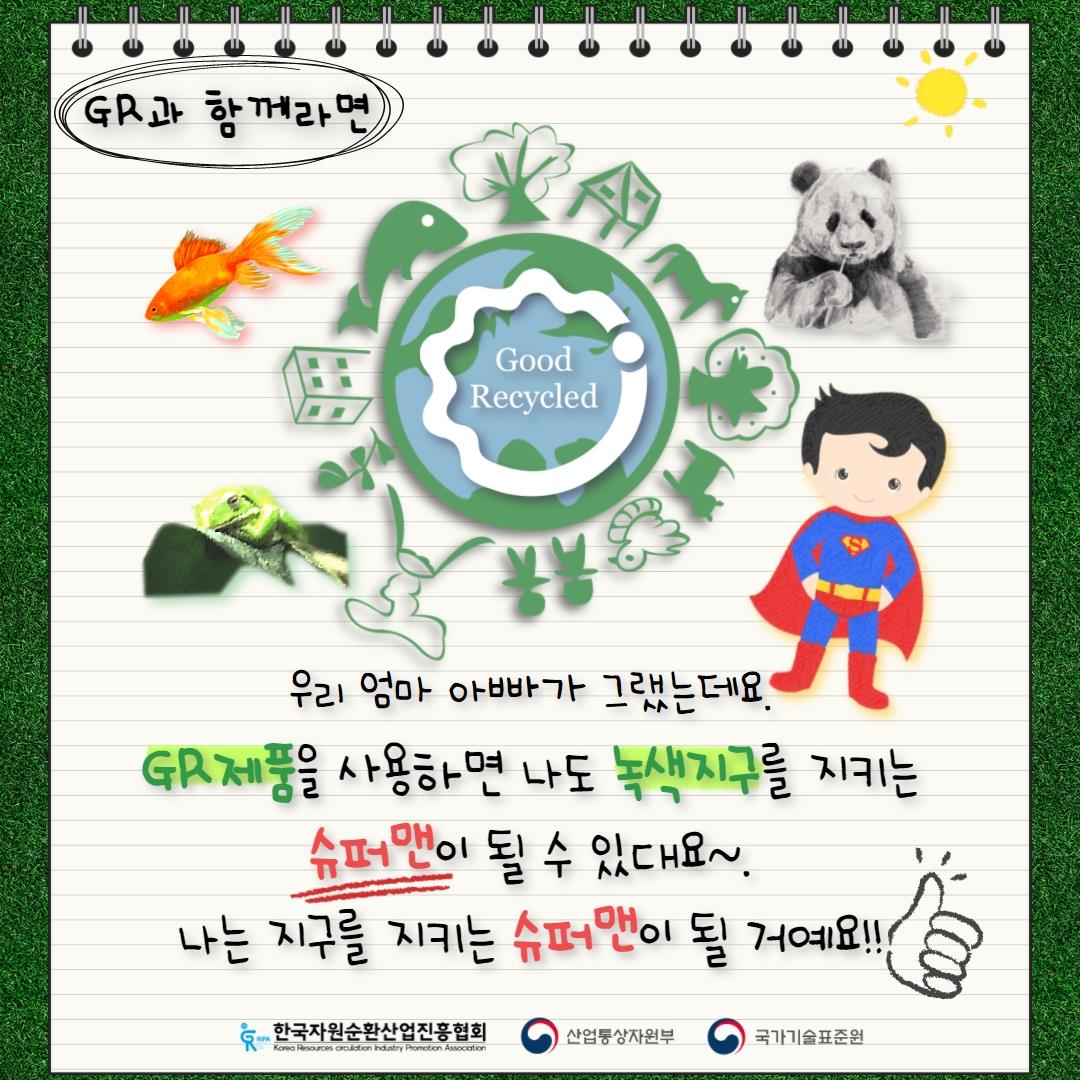 GR과 함께라면
Good
Recycled
S
우리 엄마 아빠가 그랬는데요.
GR제품을 사용하면 나도 녹색지구를 지키는
슈퍼맨이 될 수 있대요~.
나는 지구를 지키는 슈퍼맨이 될 거예요!!
RIPA 한국자원순환산업진흥협회
Korea Resources circulation Industry Promotion Association
산업통상자원부
국가기술표준원